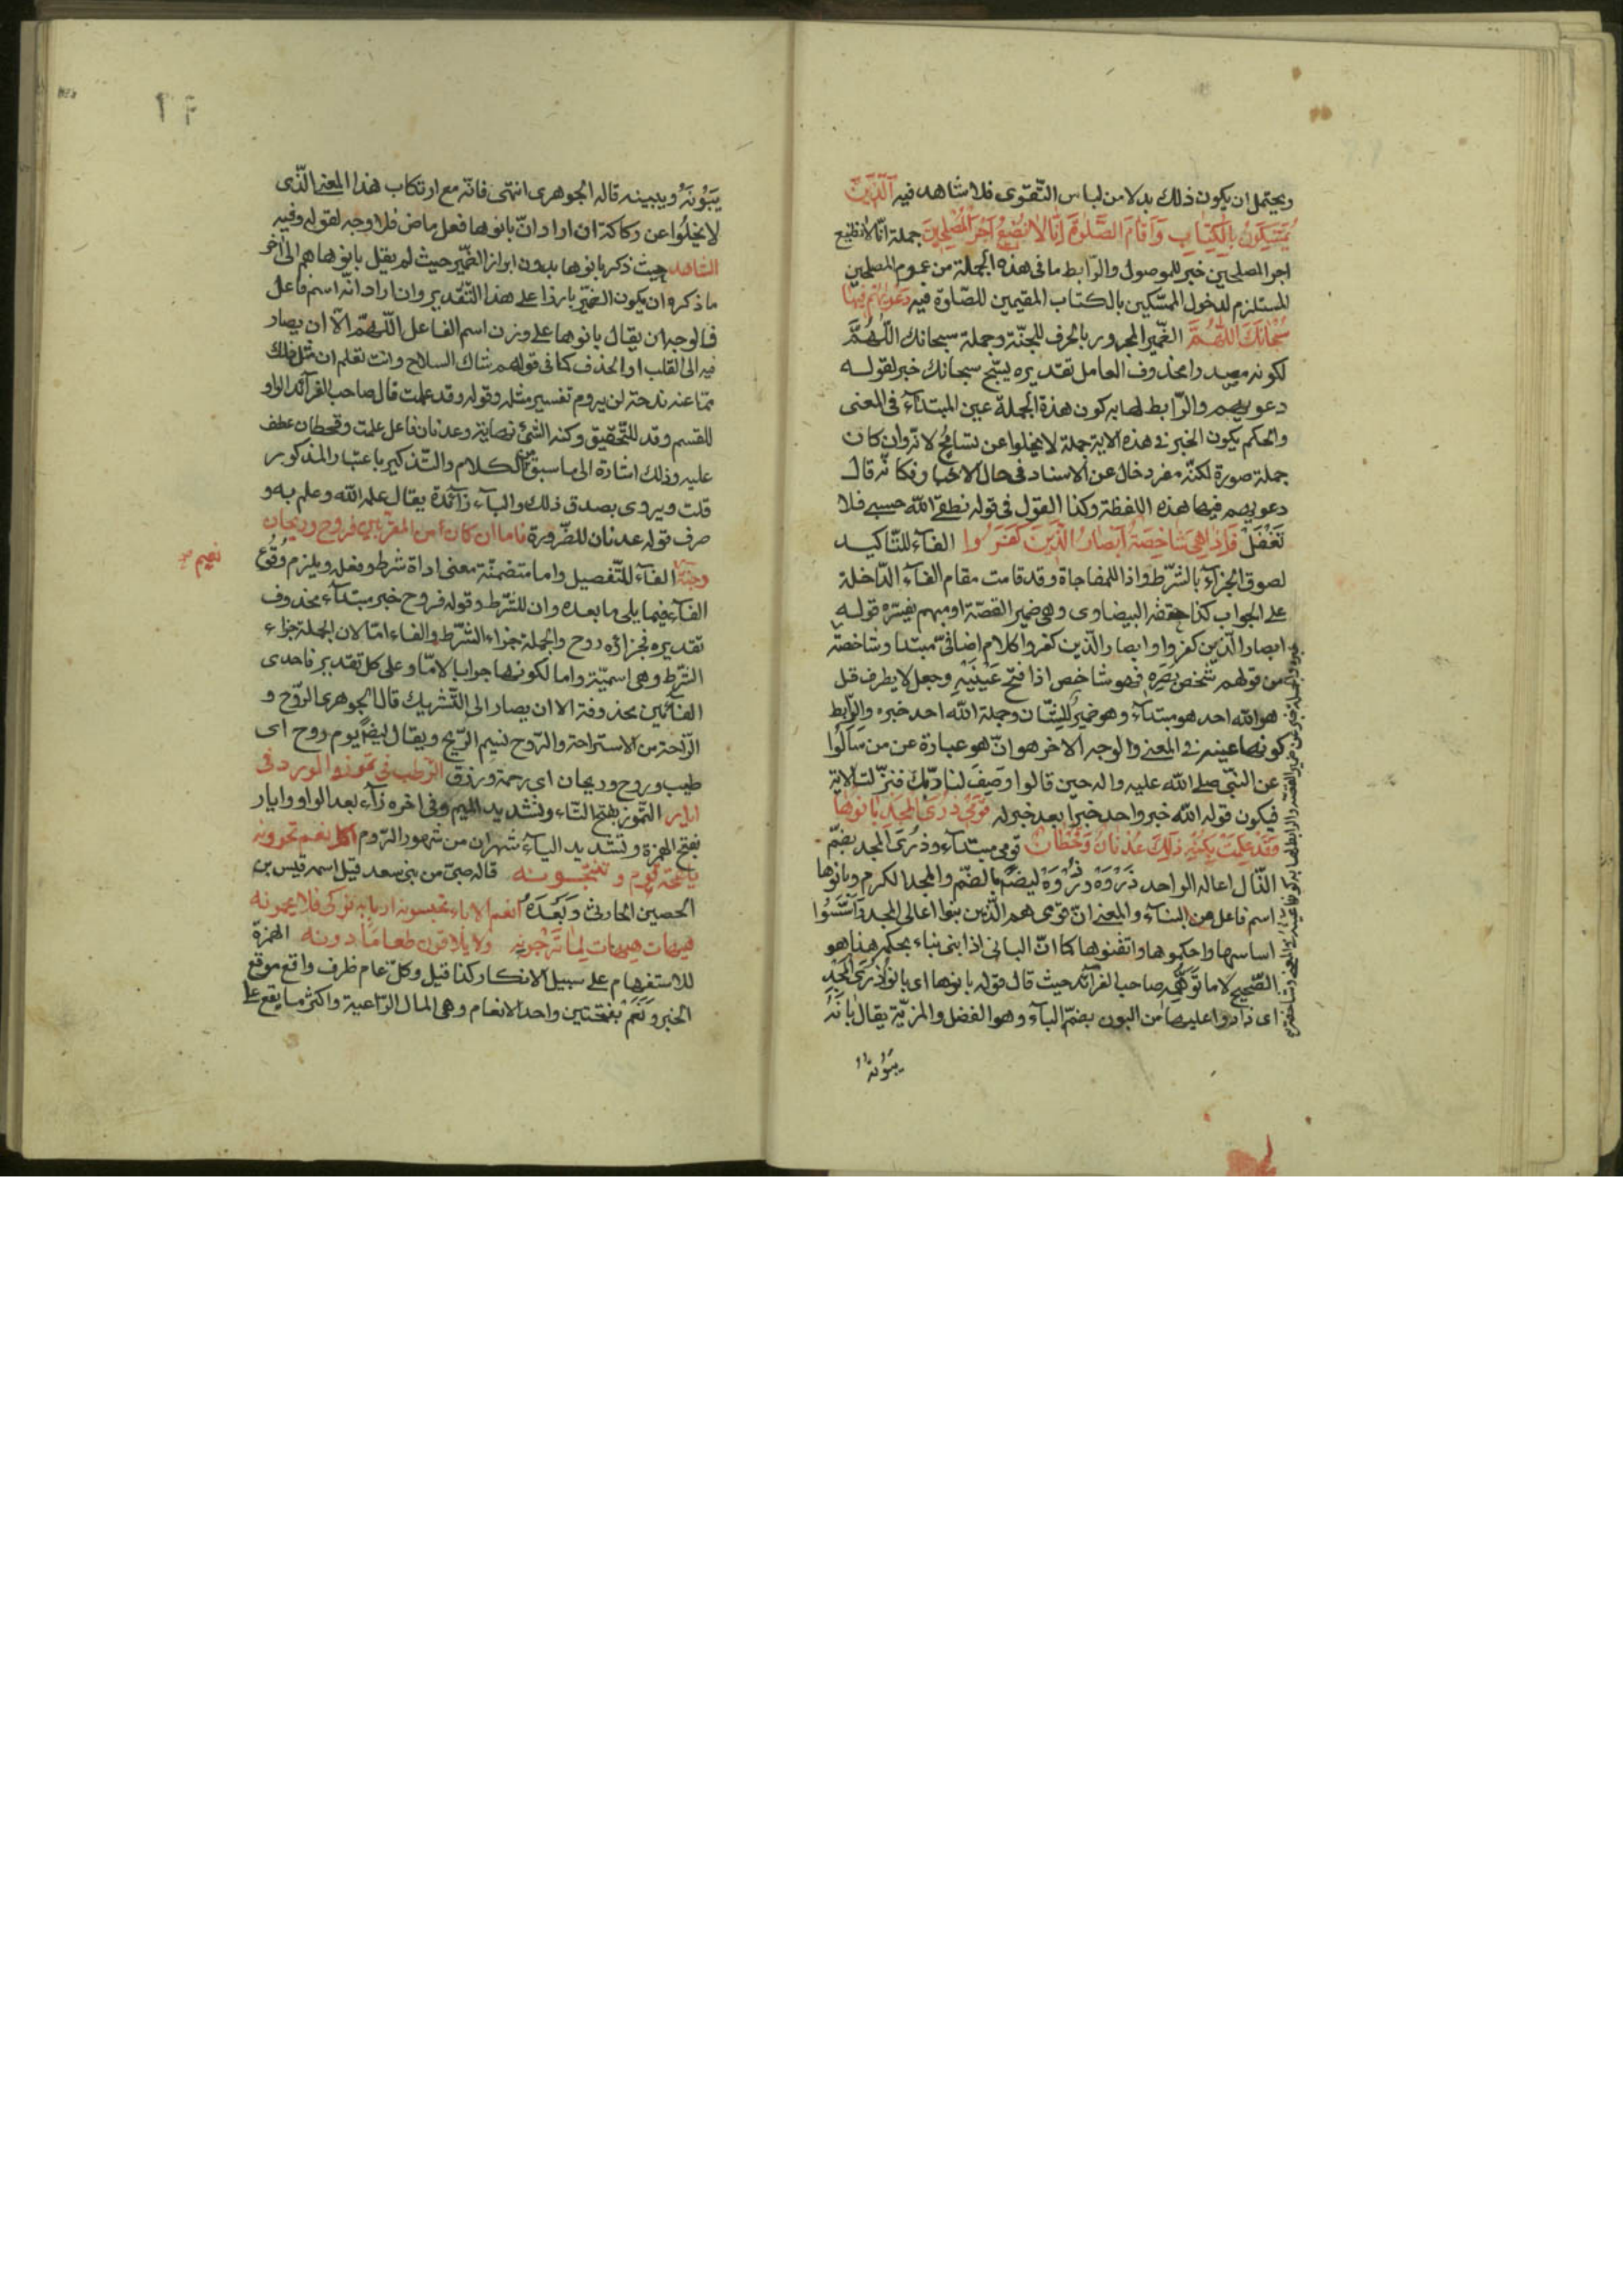 ويحتمل ان يكون ذلك بدلا من لباس التّقوى فلا شاهد فيه اَلَّذِينَ
يُمَسِّكُونَ بِالْكِتَابِ وَاَقَامَ الصَّلٰوةَ اِنَّا لَا نُضِيعُ اَجْرَ الْمُصْلِحِينَ جملة انّا لا نضيع
اجر المصلحين خبر للموصول والرّابط ما فى هذه الجملة من عموم المصلحين
المستلزم لدخول الممسّكين بالكتاب المقيمين للصّلوة فيه دَعْوٰيهُمْ فِيهَا
سُبْحَانَكَ اللّٰهُمَّ الضّمير المجرور بالحرف للجنّة وجملة سبحانك اللّٰهُمَّ
لكونه مصدرا محذوف العامل تقديره يسبّح سبحانك خبر لقوله
دعويهم والرّابط لها به كون هذة الجملة عين المبتدآء فى المعنى
والحكم بكون الخبر فى هذه الاية جملة لا يخلوا عن تسامح لانّه وان كان
جملة صورة لكنّه مفرد خال عن الاسناد فى حال الاخبار فكانّه قال
دعويهم فيها هذه اللفظة وكذا القول فى قوله نطقى اللّه حسبى فلا
تَغْفُلْ فَاِذَا هِىَ شَاخِصَةٌ اَبْصَارُ الَّذِينَ كَفَرُوا الفآء للتّاكيد
لصوق الجزآء بالشّرط واذا للمفاجاة وقد قامت مقام الفآء الدّاخلة
على الجواب كذا حققه البيضاوى وهى ضمير القصّة او مبهم يفسّره قوله
ابصار الّذين كفروا وابصار الّذين كفروا كلام اضافىّ مبتدا وشاخصة
من قولهم شَخَصَ بَصَرُه فهو شاخص اذا فتح عَيْنَيْهِ وجعل لا يطرف قل
هو اللّه احد هو مبتدآء وهو ضمير للشّان وجملة اللّه احد خبره والرّابط
كونها عينه فى المعنى والوجه الاخر هو انّ هو عبارة عن من سَاَلُوا
عن النّبىّ صلى اللّه عليه واله حين قالوا وَصِفْ لنا ربّك فنزلت الاية
فيكون قوله اللّه خبر واحد خبرا بعد خبر له قَوْمِى ذُرَى الْمَجْدِ بَانُوهَا
وَقَدْ عَلِمَتْ بِكُنْهِ ذٰلِكَ عَدْنَانُ وَقَحْطَانُ قومى مبتدآء وذُرَى المجد بضمّ
الذّال اعاله الواحد ذَرْوَة وذُرْوَة ايضًا بالضّم والمجد الكرم وبانوها
اسم فاعل من البنآء والمعنى انّ قومى هم الّذين بنوا اعالى المجد وَاَسَّسُوا
اساسها واحكموها واتقنوها كما انّ البانى اذا بنى بناء يحكمه هذا هو
الصّحيح لا ما تَوَهَّمَه صاحب الفرآئد حيث قال قوله بانوها اى بانُو ذُرَى الْمَجْدِ
اى زادوا عليها من البون بضمّ البآء وهو الفضل والمزيّة يقال بَانَهُ
يَبُوْنُهُ
يَبُوْنُهُ ويبينه قاله الجوهرى انتهى فانّه مع ارتكاب هذا المعنى الّذى
لا يخلُوا عن ركاكة ان اراد انّ بانوها فعل ماض فلا وجه لقوله وفيه
الشاهد حيث ذكر بانوها بدون ابراز الضّمير حيث لم يقل بانوها هم الى اخر
ما ذكره وان يكون الضّمير بارزا على هذا التّقدير وان اراد انّه اسم فاعل
فالوجه ان يقال بانوها على وزن اسم الفاعل اللّهمّ الّا ان يصار
فيه الى القلب او الحذف كما فى قولهم شاك السلاح وانت تعلم ان مثل ذلك
ممّا عنه ندحة لن يروم تفسير مثله وقوله وقد علمت قال صاحب الفرآئد الواو
للقسم وقد للتّحقيق وكنه الشئ نهايته وعدنان فاعل علمت وقحطان عطف
عليه وذلك اشارة الى ما سبق من الكلام والتّذكير باعتبار المذكور
قلت ويروى بصدق ذلك والبآء زآئدة يقال علمه اللّه وعلم به و
صرف قوله عدنان للضّرورة فاما ان كان من المقرّبين فروح وريحان
وجنّة الفآء للتّفصيل واما متضمنّة معنى اداة شرط وفعله ويلزم وُقُوع
نعيم
الفآء فيما يلى ما بعده وان للشّرط وقوله فروح خبر مبتدآء محذوف
تقديره فجزاؤه روح والجملة جزاء الشّرط والفاء امّا لان الجملة جزاء
الشّرط وهى اسميّة واما لكونها جوابا لامّا وعلى كل تقدير فاحدى
الفآئين محذوفة الا ان يصار الى التّشريك قال الجوهرى الرّوح و
الرّاحة من الاستراحة والرّوح نسيم الرّيح ويقال ايضًا يوم روح اى
طيب وروح وريحان اى رحمة ورزق الرّطب فى تمّوز والورد فى
ايار التّموز بفتح التّاء وتشديد الميم وفى اخره زآء بعد الواو وايار
بفتح الهمزة وتشديد اليآء شهران من شهور الرّوم اكل نعم تحوونه
يلقحه قوم وتنتجونه قاله صبىّ من بنى سعد قيل اسمه قيس بن
الحصين الحارثى وَبَعْدَهُ
هيهات هيهات لِمَا تَرْجُونه الهمزة
للاستفهام على سبيل الانكار كذا قيل وكلّ عام ظرف واقع موقع
الخبر وَنَعَمٌ بفتحتين واحد الانعام وهى المال الرّاعية واكثر ما يقع على